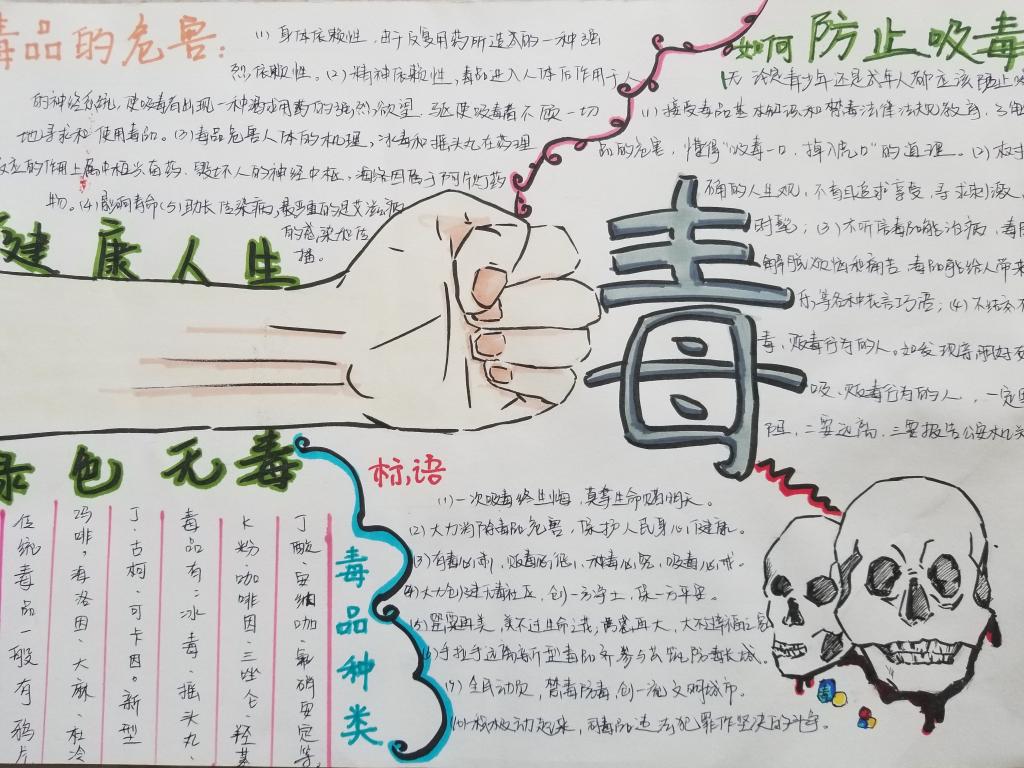 毒品的危害:
(1) 身体依赖性,由于反复用药所造成的一种强
烈依赖性。(2)精神依赖性,毒品进入人体后作用于人
的神经系统,使吸毒者出现一种渴求用药的强烈欲望,驱使吸毒者不顾一切
地寻求和使用毒品。(3)毒品危害人体的机理,冰毒和摇头丸在药理
反应的作用上属中枢兴奋药,毁坏人的神经中枢,海洛因属于阿片药
物。(4)影响寿命(5)助长传染病,最严重的是艾滋病
的感染和传
播。
健康人生
绿色无毒
如何防止吸毒
无论是青少年还是成年人都应该防止吸
(1)接受毒品基本知识和禁毒法律法规教育,
品的危害,懂得"吸毒一口,掉入虎口"的道理。(2)
确的人生观,不盲目追求享受,寻求刺激,
时髦;(3)不听信毒品能治病,毒品
解脱烦恼和痛苦,毒品能给人带来
乐等各种花言巧语;(4)不结交
毒、贩毒行为的人。如发现亲朋好友
吸、贩毒行为的人,一定
阻,二要远离,三要报告公安机关
毒
标语
(1)一次吸毒终生悔,莫拿生命赌明天。
(2)大力消除毒品危害,保护人民身心健康。
(3)有毒必肃,贩毒必惩,种毒必究,吸毒必戒。
(4)大力创建无毒社区,创一方净土,保一方平安。
(5)罂粟再美,美不过生命之花;
(6)手拉手远离新型毒品 齐参与共筑防毒长城。
(7)全民动员,禁毒防毒,创一流文明城市。
积极行动起来,同毒品违法犯罪作坚决的斗争。
毒品种类
传统毒品一般有鸦片
吗啡,海洛因、大麻、杜冷
丁、古柯、可卡因。新型
毒品有:冰毒、摇头丸、
K粉、咖啡因、三唑仑、羟基
丁酸、安纳咖、氟硝安定等